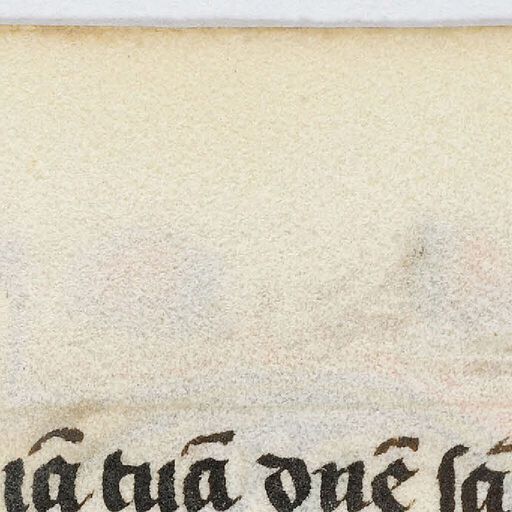 iā tuā dnē sā